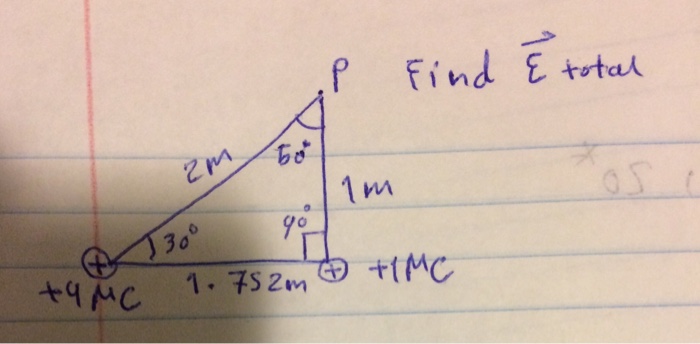 P Find E⃗ total
2m
60°
1m
90°
30°
+4 μC 1.752m + +1 μC